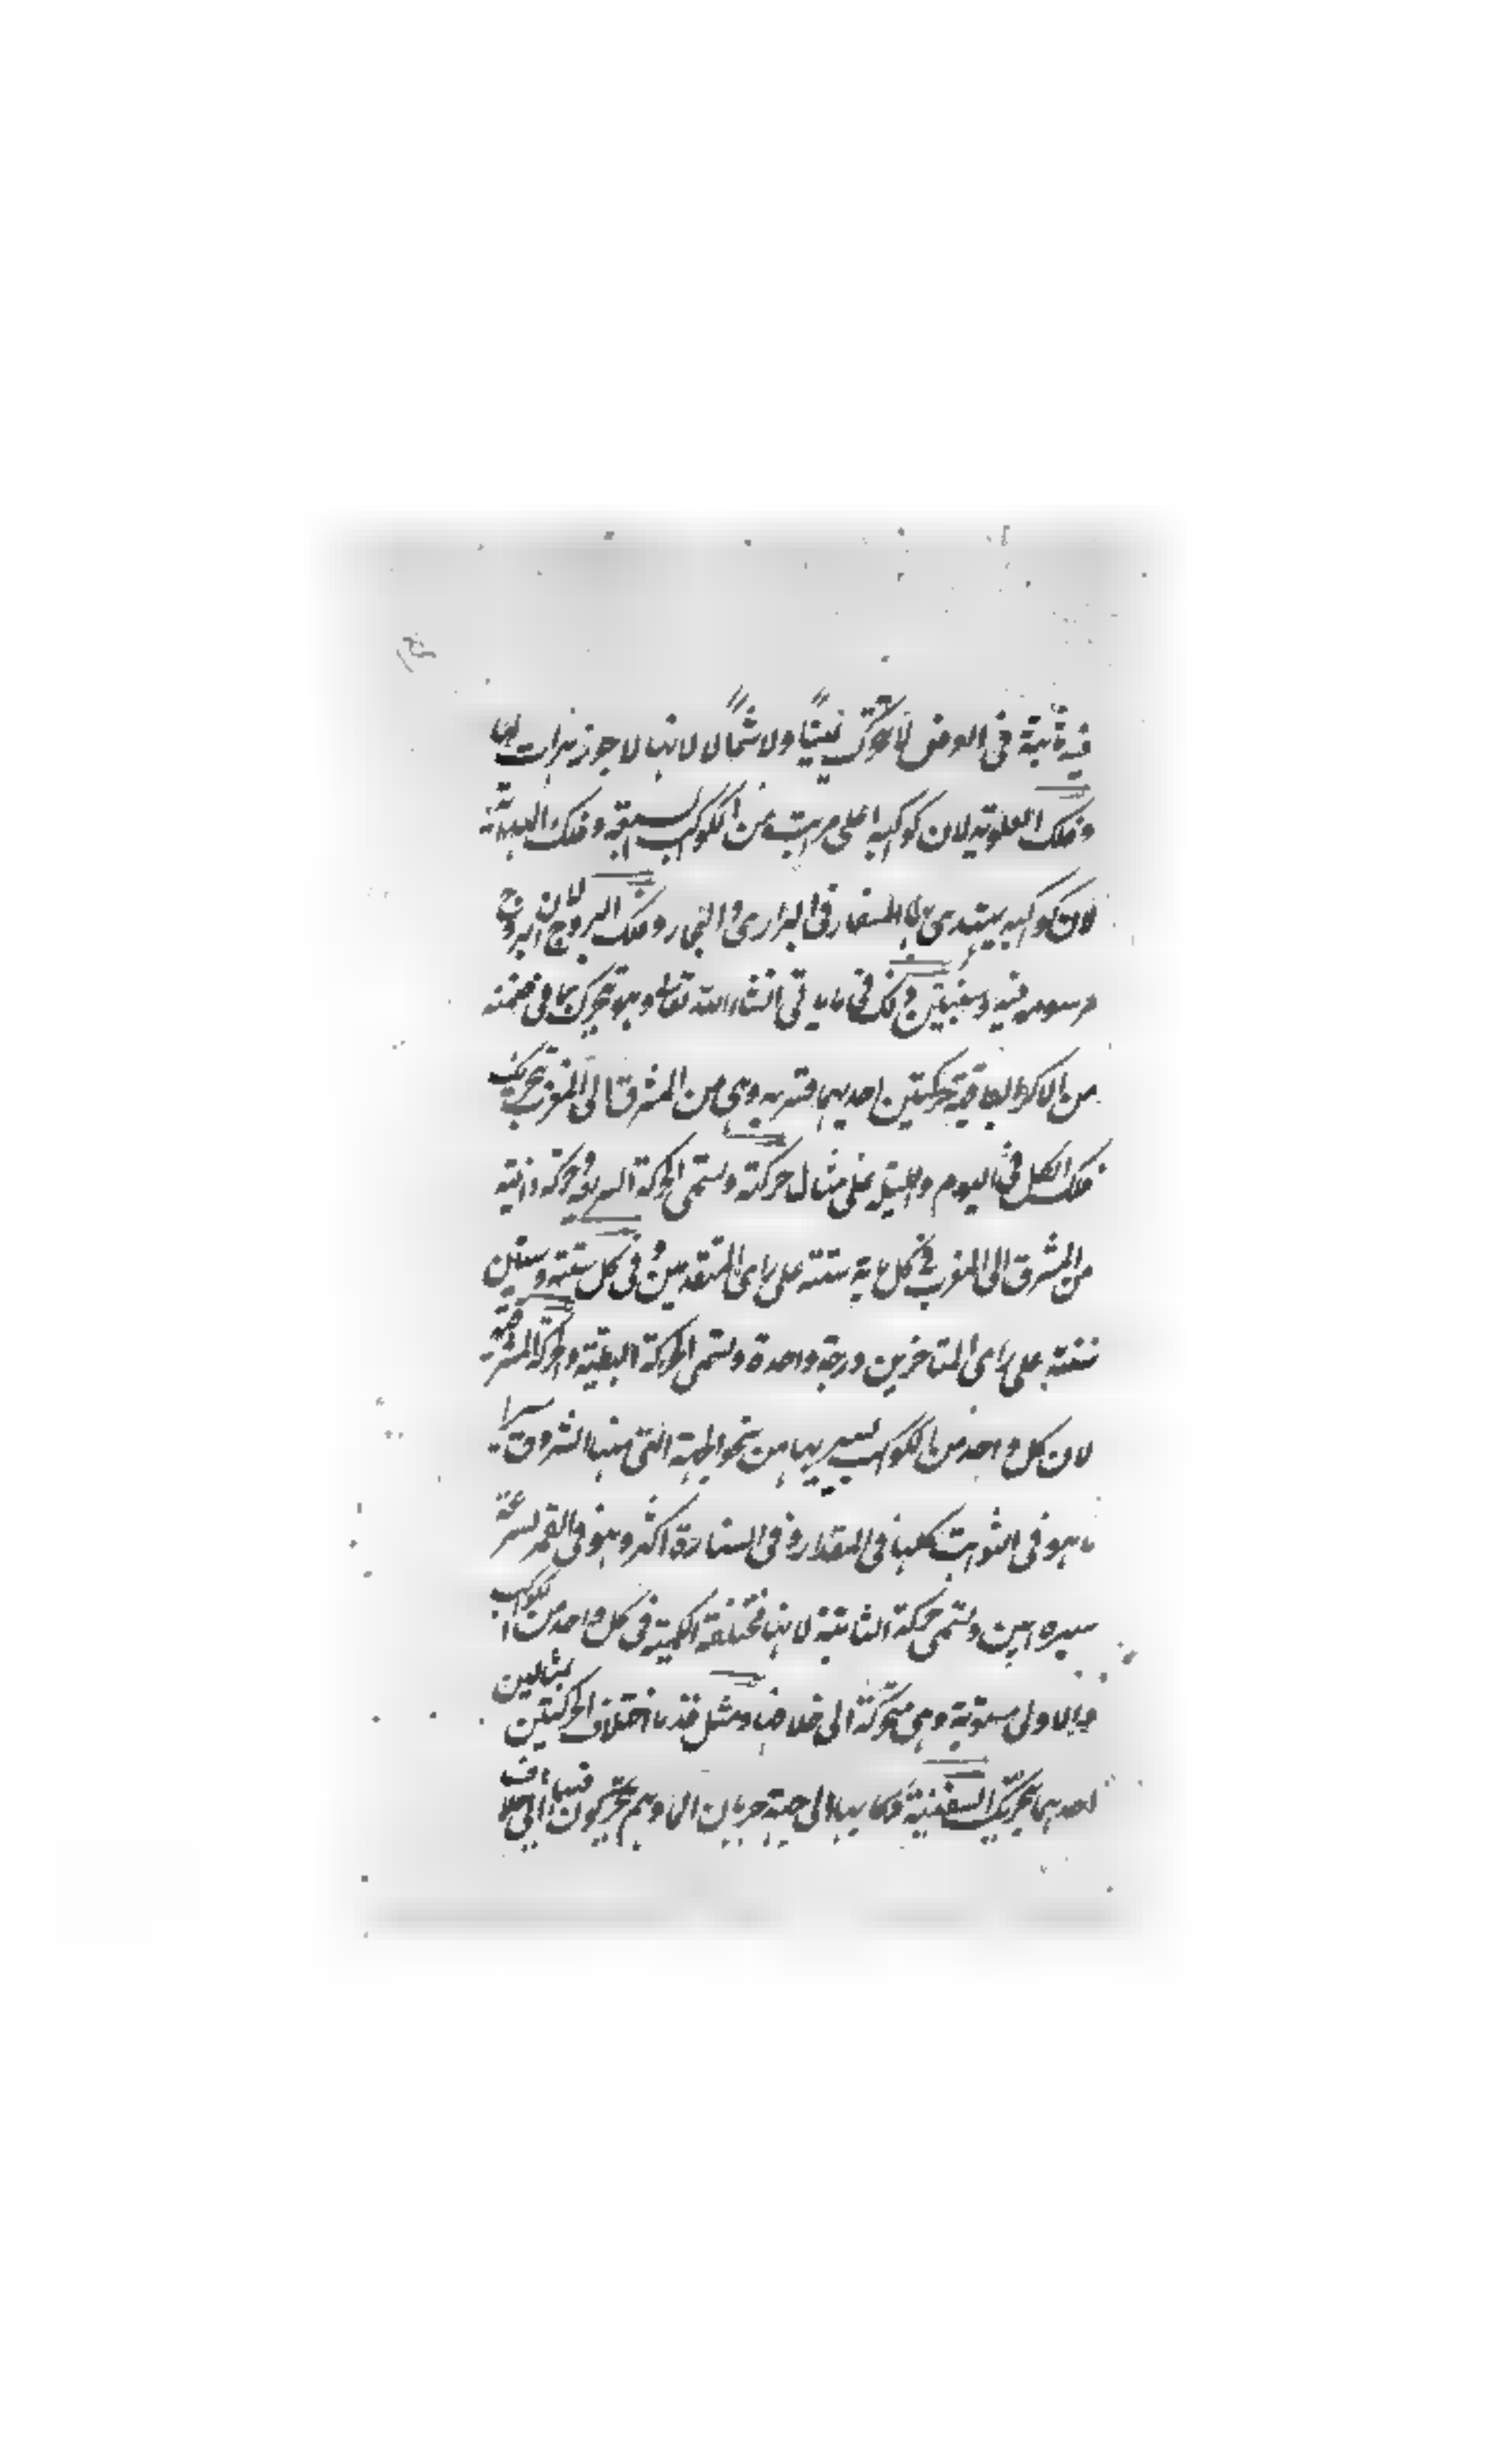 فيه ثابتة فى العرض لا تتحرك يمينًا ولا شمالًا لانها لا جوز هرات لها
وفلك العلوية لان كواكبه اعلى مرتبة من الكواكب السبعة وفلك الهداية
لان كواكبه يهتدى بها المسافر فى البرارى والبحار وفلك البروج لان البروج
مرسومة فيه وسنبين ذلك فيما ياتى انشاء الله تعالى وهو يتحرك بما فى ضمنه
من الاكر الباقية حركتين احديهما قسرية وهى من المشرق الى المغرب بتحريك
فلك الكل فى اليوم والليلة على مثال حركته وتسمى الحركة السريعة وحركة ذاتية
من المشرق الى المغرب فى كل ماية سنة على راى المتقدمين وفى كل ستة وستين
سنة على راى المتاخرين درجة واحدة وتسمى الحركة البطيئة والحركة المشرقية
لان كل واحد من الكواكب يسير بها من نحو الجهة التى منها الشروق
ما هو فى الثوابت كلها فى المقدار وفى السيارة اكثر وهو فى القمر لسرعة
سيره ابين وتسمى حركة الثانية لانها مختلفة الكمية فى كل واحد من الكواكب
والاولى مستوية وهى متحركة الى خلافها ومثل قدما اختلاف الحركتين بمثالين
احديهما بتحريك السفينة ركابها الى جهة جريان الماء وهم يتحركون فيها الى خلاف